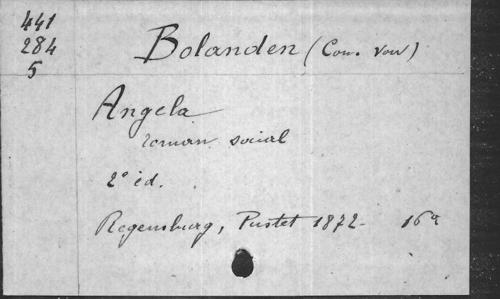 441
284
5
Bolanden (Con. von)
Angela
roman social
2e éd.
Regensburg, Pustet 1872- 16°